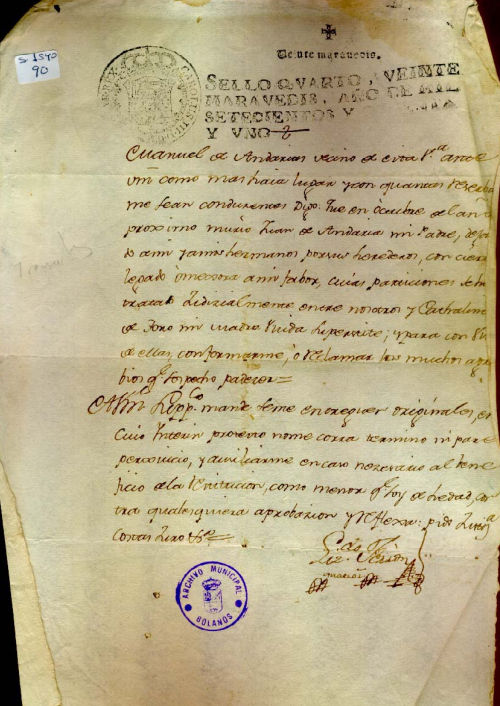 S. 1540
90
Veinte maravedis.
SELLO QVARTO, VEINTE
MARAVEDIS, AÑO DE MIL
SETECIENTOS Y
Y VNO
Manuel de Andarias vecino de esta V.ª ante
Vm como mas haia lugar y con quantos
me sean conducentes Digo: que en Octubre del año
proximo murio Juan de Andaria mi Padre, dejando
a mi y a mis hermanos por sus herederos, con cierto
legado o mejora a mi fabor, cuias particiones se han
tratado Judicialmente entre nosotros y Cathalina
de Toro mi Madre Viuda ; y para con
de ellas, conformarme, o reclamar los muchos agra
bios q.e sospecho padecer=
A Vm Supp.co mande se me entreguen originales, en
cuio interin protexto no me corra termino ni pare
perjuicio, y auxiliarme en caso nezesario al bene
ficio de la restitucion, como menor q.e soy de hedad, con
tra qualesquiera aprobazion y pido Justiz.ª
Costas Juro &.ª=
ARCHIVO MUNICIPAL
BOLAÑOS